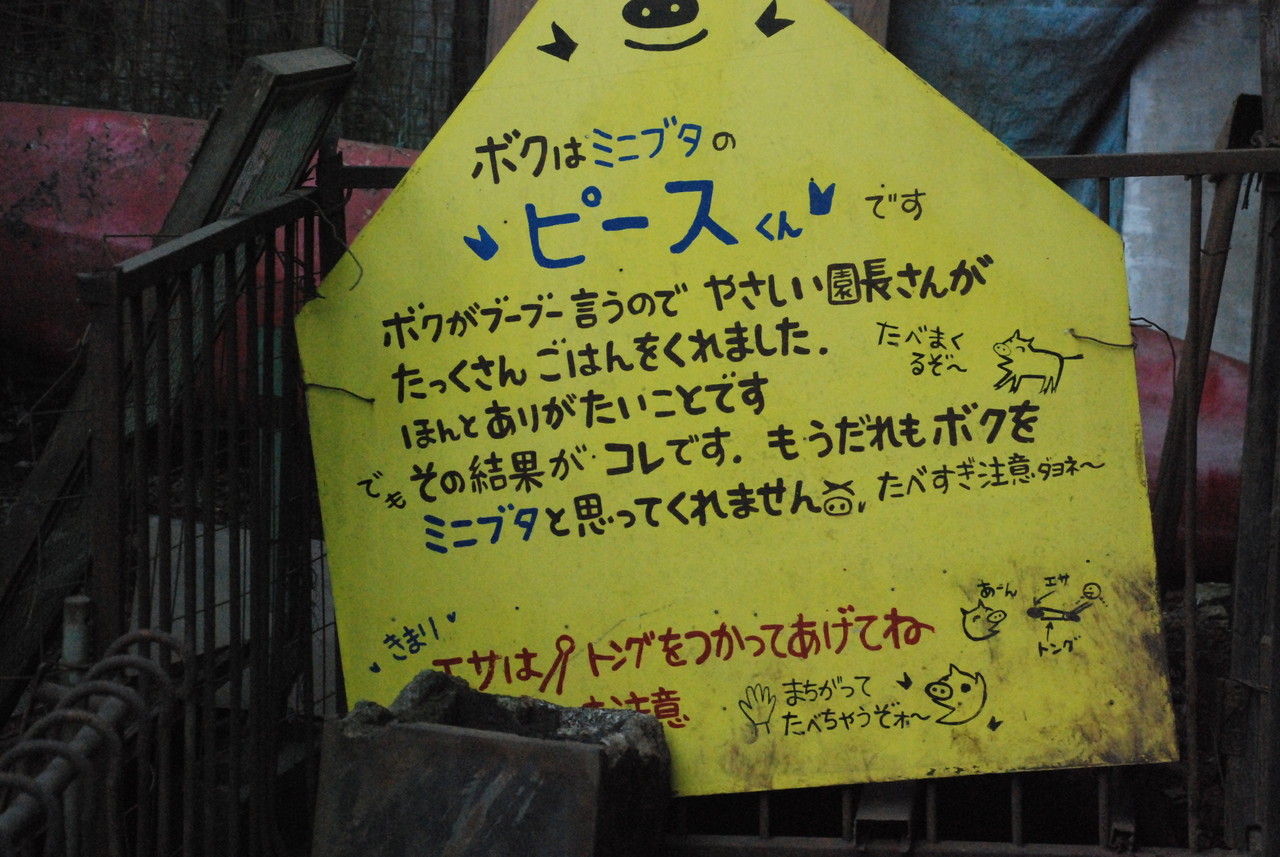 ボクはミニブタの
ピースくん です
ボクがブーブー言うので やさしい園長さんが
たっくさん ごはんをくれました.
たべまく
るぞ〜
ほんとありがたいことです
でも その結果が コレです. もうだれもボクを
ミニブタと思ってくれません
たべすぎ注意.ダヨネ〜
きまり
エサは トングをつかってあげてね
注意
あーん
エサ
トング
まちがって
たべちゃうぞォ〜